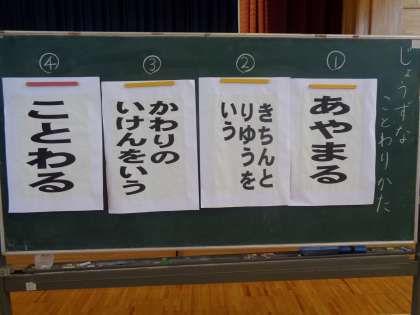 じょうずな
ことわりかた
①
あやまる
②
きちんと
りゆうを
いう
③
かわりの
いけんをいう
④
ことわる